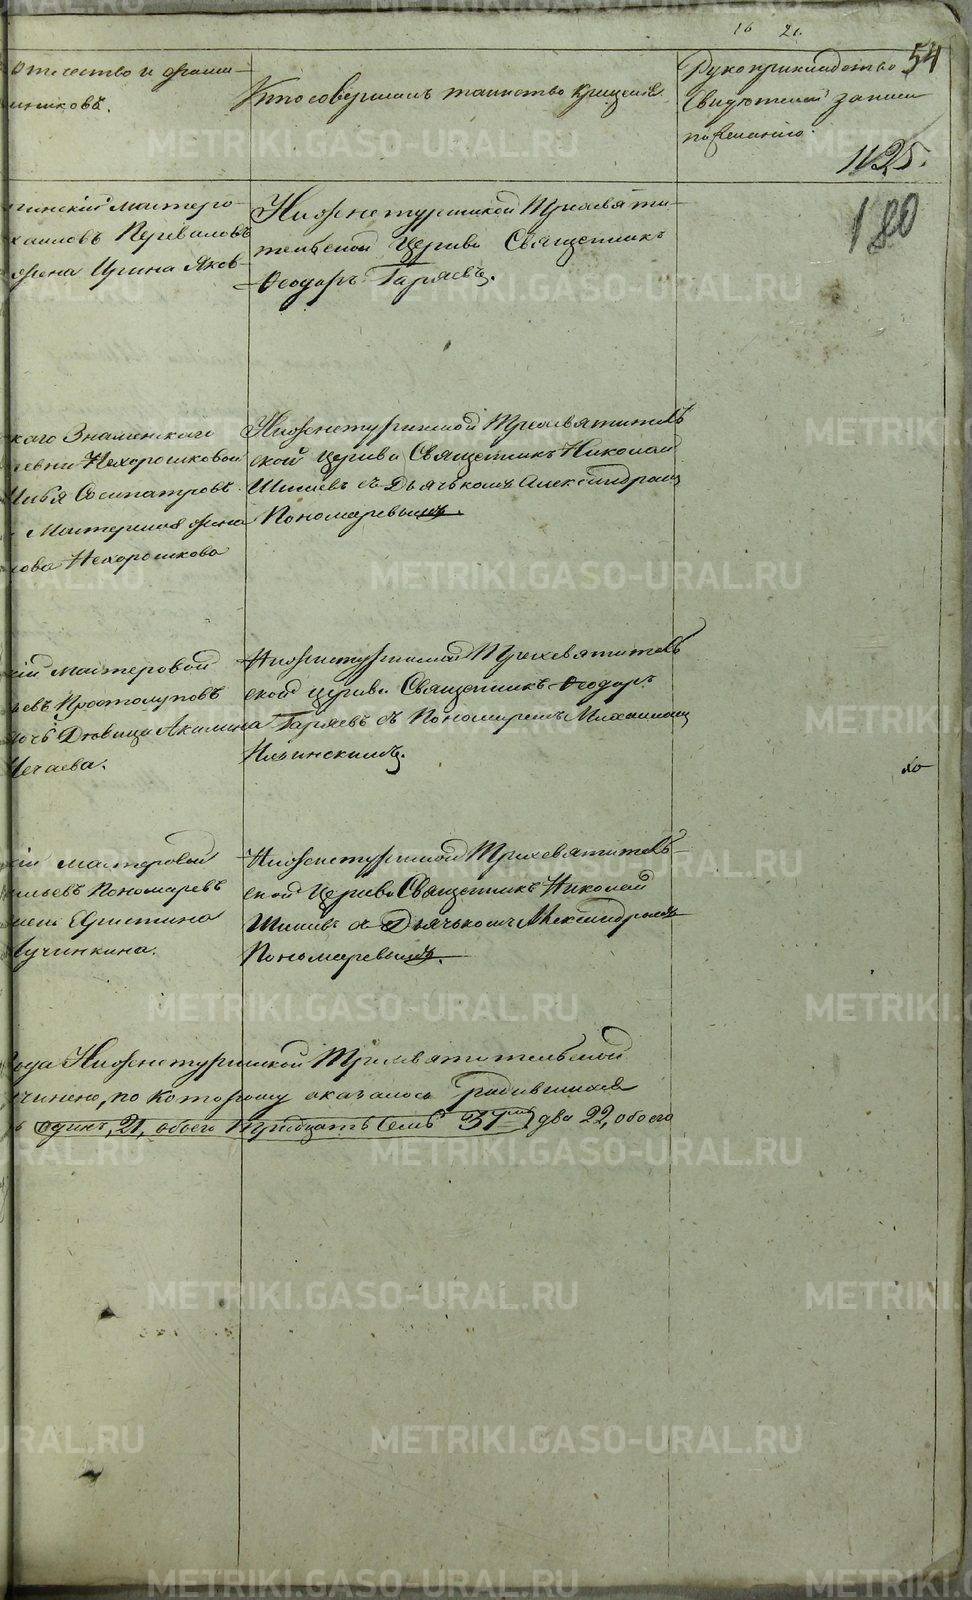 16 21.
54
отчество и фами-
Кто совершалъ таинство крещенія
Рукоприкладство
свидѣтелей записи
по желанію.
1125.
180
михаиловъ Переваловъ
жена Ирина Яков-
Нижнетуринской Трехсвяти-
тельской Церкви Священникъ
Ѳеодоръ Гаряевъ.
каго Знаменскаго
Нехорошковой
Илья Сосипатровъ
Мастерская жена
Нехорошкова
Нижнетуринской Трехсвятитель
ской церкви Священникъ Николай
Шишевъ съ Дьячкомъ Александромъ
Пономаревымъ.
кій мастеровой
Простолуповъ
дочь Дѣвица Акилина
Нечаева.
Нижнетуринской Трехсвятитель
ской церкви Священникъ Ѳеодоръ
Гаряевъ съ Пономаремъ Михаиломъ
Ильинскимъ.
кій мастеровой
Пономаревъ
Христина
Лучинкина.
Нижнетуринской Трехсвятитель-
ской Церкви Священникъ Николай
Шишевъ съ Дьячкомъ Александромъ
Пономаревымъ.
года Нижнетуринской Трехсвятительской
чинено, по которому оказалось родившихся
одинъ, 21, обоего тридцать семь 37 два 22, обоего
METRIKI.GASO-URAL.RU